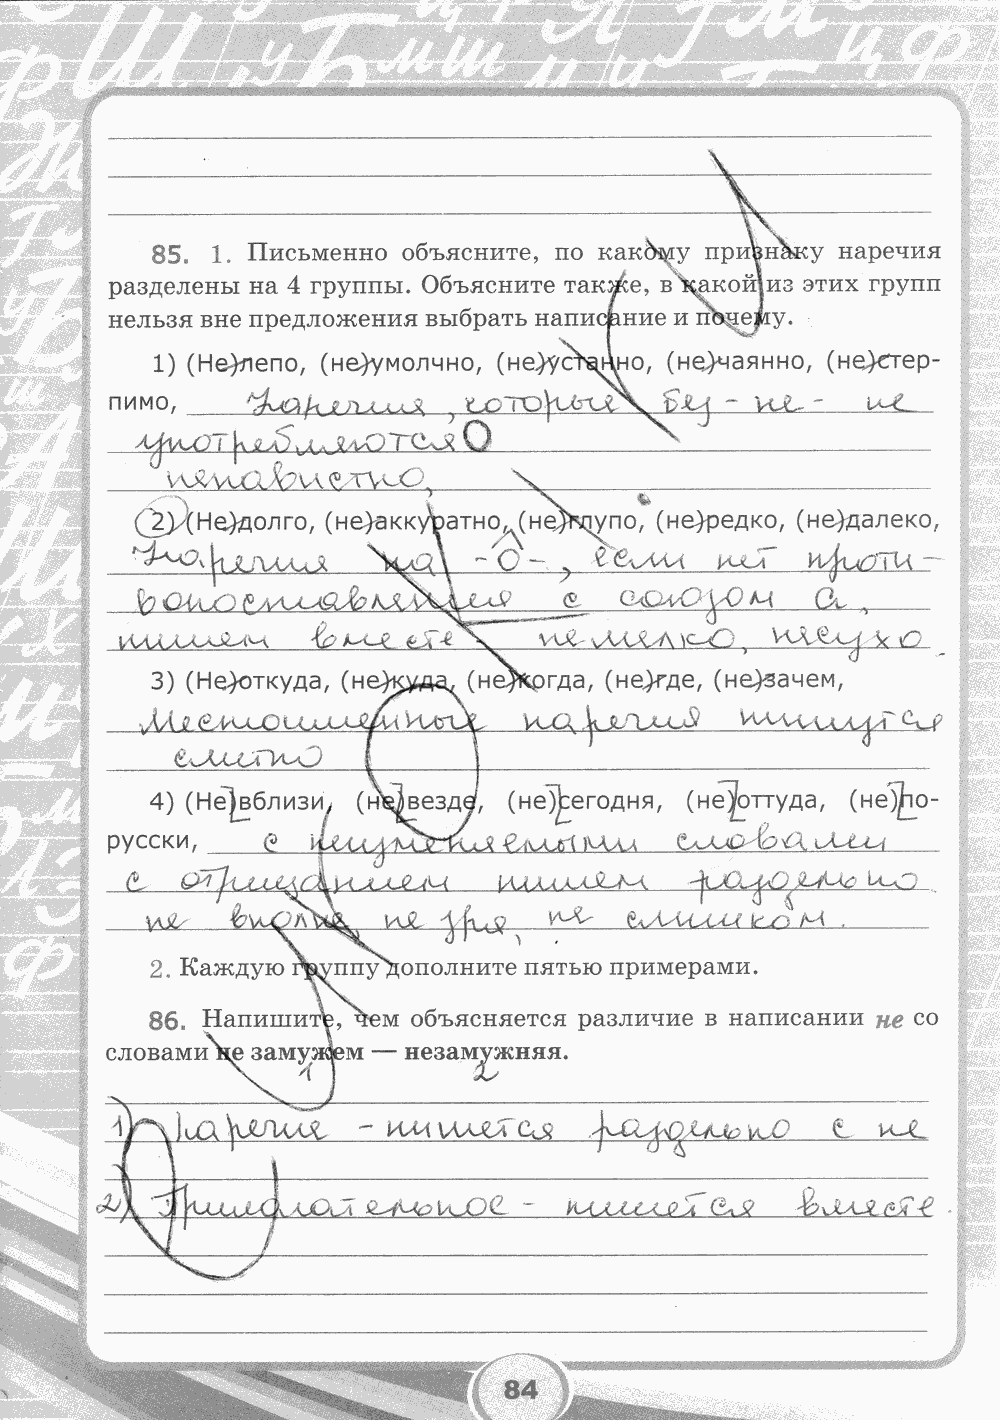 85. 1. Письменно объясните, по какому признаку наречия
разделены на 4 группы. Объясните также, в какой из этих групп
нельзя вне предложения выбрать написание и почему.
1) (Не)лепо, (не)умолчно, (не)устанно, (не)чаянно, (не)стер-
пимо, Наречия, которые без - не - не
употребляются
ненавистно,
2) (Не)долго, (не)аккуратно, (не)глупо, (не)редко, (не)далеко,
Наречия на -о-, если нет проти-
вопоставления с союзом а,
пишем вместе - немелко, несухо.
3) (Не)откуда, (не)куда, (не)когда, (не)где, (не)зачем,
Местоименные наречия пишутся
слитно
4) (Не)вблизи, (не)везде, (не)сегодня, (не)оттуда, (не)по-
русски, с неизменяемыми словами
с отрицанием пишем раздельно
не вполне, не зря, не слишком.
2. Каждую группу дополните пятью примерами.
86. Напишите, чем объясняется различие в написании не со
словами не замужем — незамужняя.
1 2
1) Наречие - пишется раздельно с не
2) Прилагательное - пишется вместе.
84